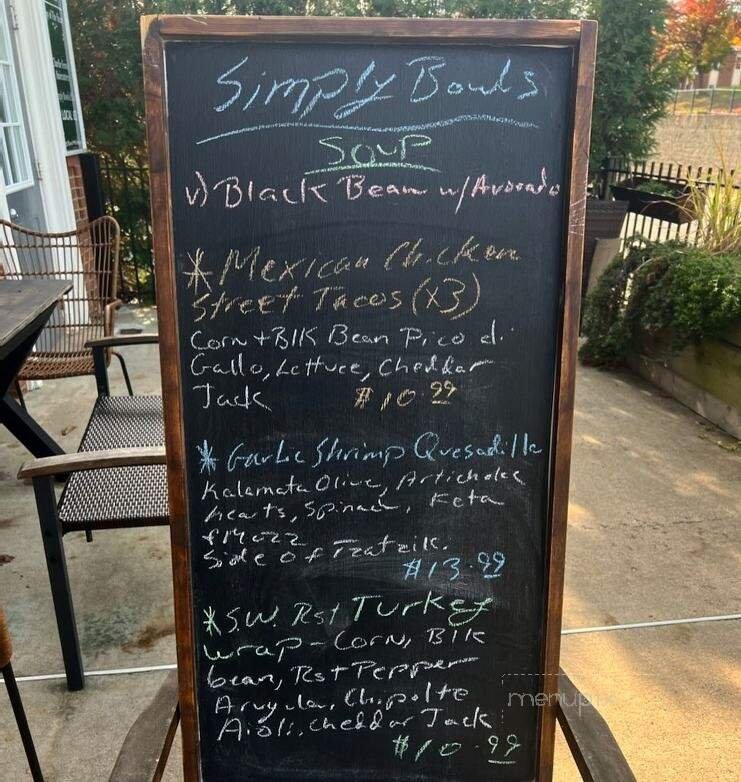 Simply Bowls
SOUP
v) Black Bean w/Avocado
* Mexican Chicken
Street Tacos (x3)
Corn + Blk Bean Pico d.
Gallo, Lettuce, Cheddar
Jack $10.99
* Garlic Shrimp Quesadilla
Kalamata Olive, Artichoke
hearts, Spinach, Feta
+ Mozz
Side of Tzatziki.
$13.99
* S.W. Rst Turkey
wrap - Corn, Blk
bean, Rst Pepper
Arugula, Chipolte
Aioli, Cheddar Jack
$10.99